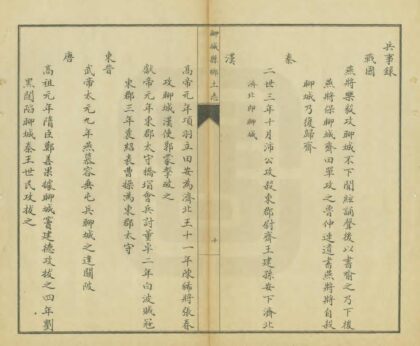 兵事錄
戰國
燕將樂毅攻聊城不下聞訛謗聲後以書喻之乃下後
燕將保聊城齊田單攻之魯仲連遺書燕將將自殺
聊城乃復歸齊
秦
二世三年十月沛公攻殺東郡尉齊王建孫安下濟北
濟北即聊城
聊城縣鄉土志
十
漢
高帝元年項羽立田安為濟北王十一年陳豨將張春
攻聊城漢使郭蒙擊破之
獻帝元年東郡太守橋瑁會兵討董卓二年白波賊寇
東郡三年袁紹表曹操為東郡太守
東晉
武帝太元九年燕慕容垂屯兵聊城之逢關陂
唐
高祖元年隋臣鄭善果據聊城竇建德攻拔之四年劉
黑闥陷聊城秦王世民攻拔之